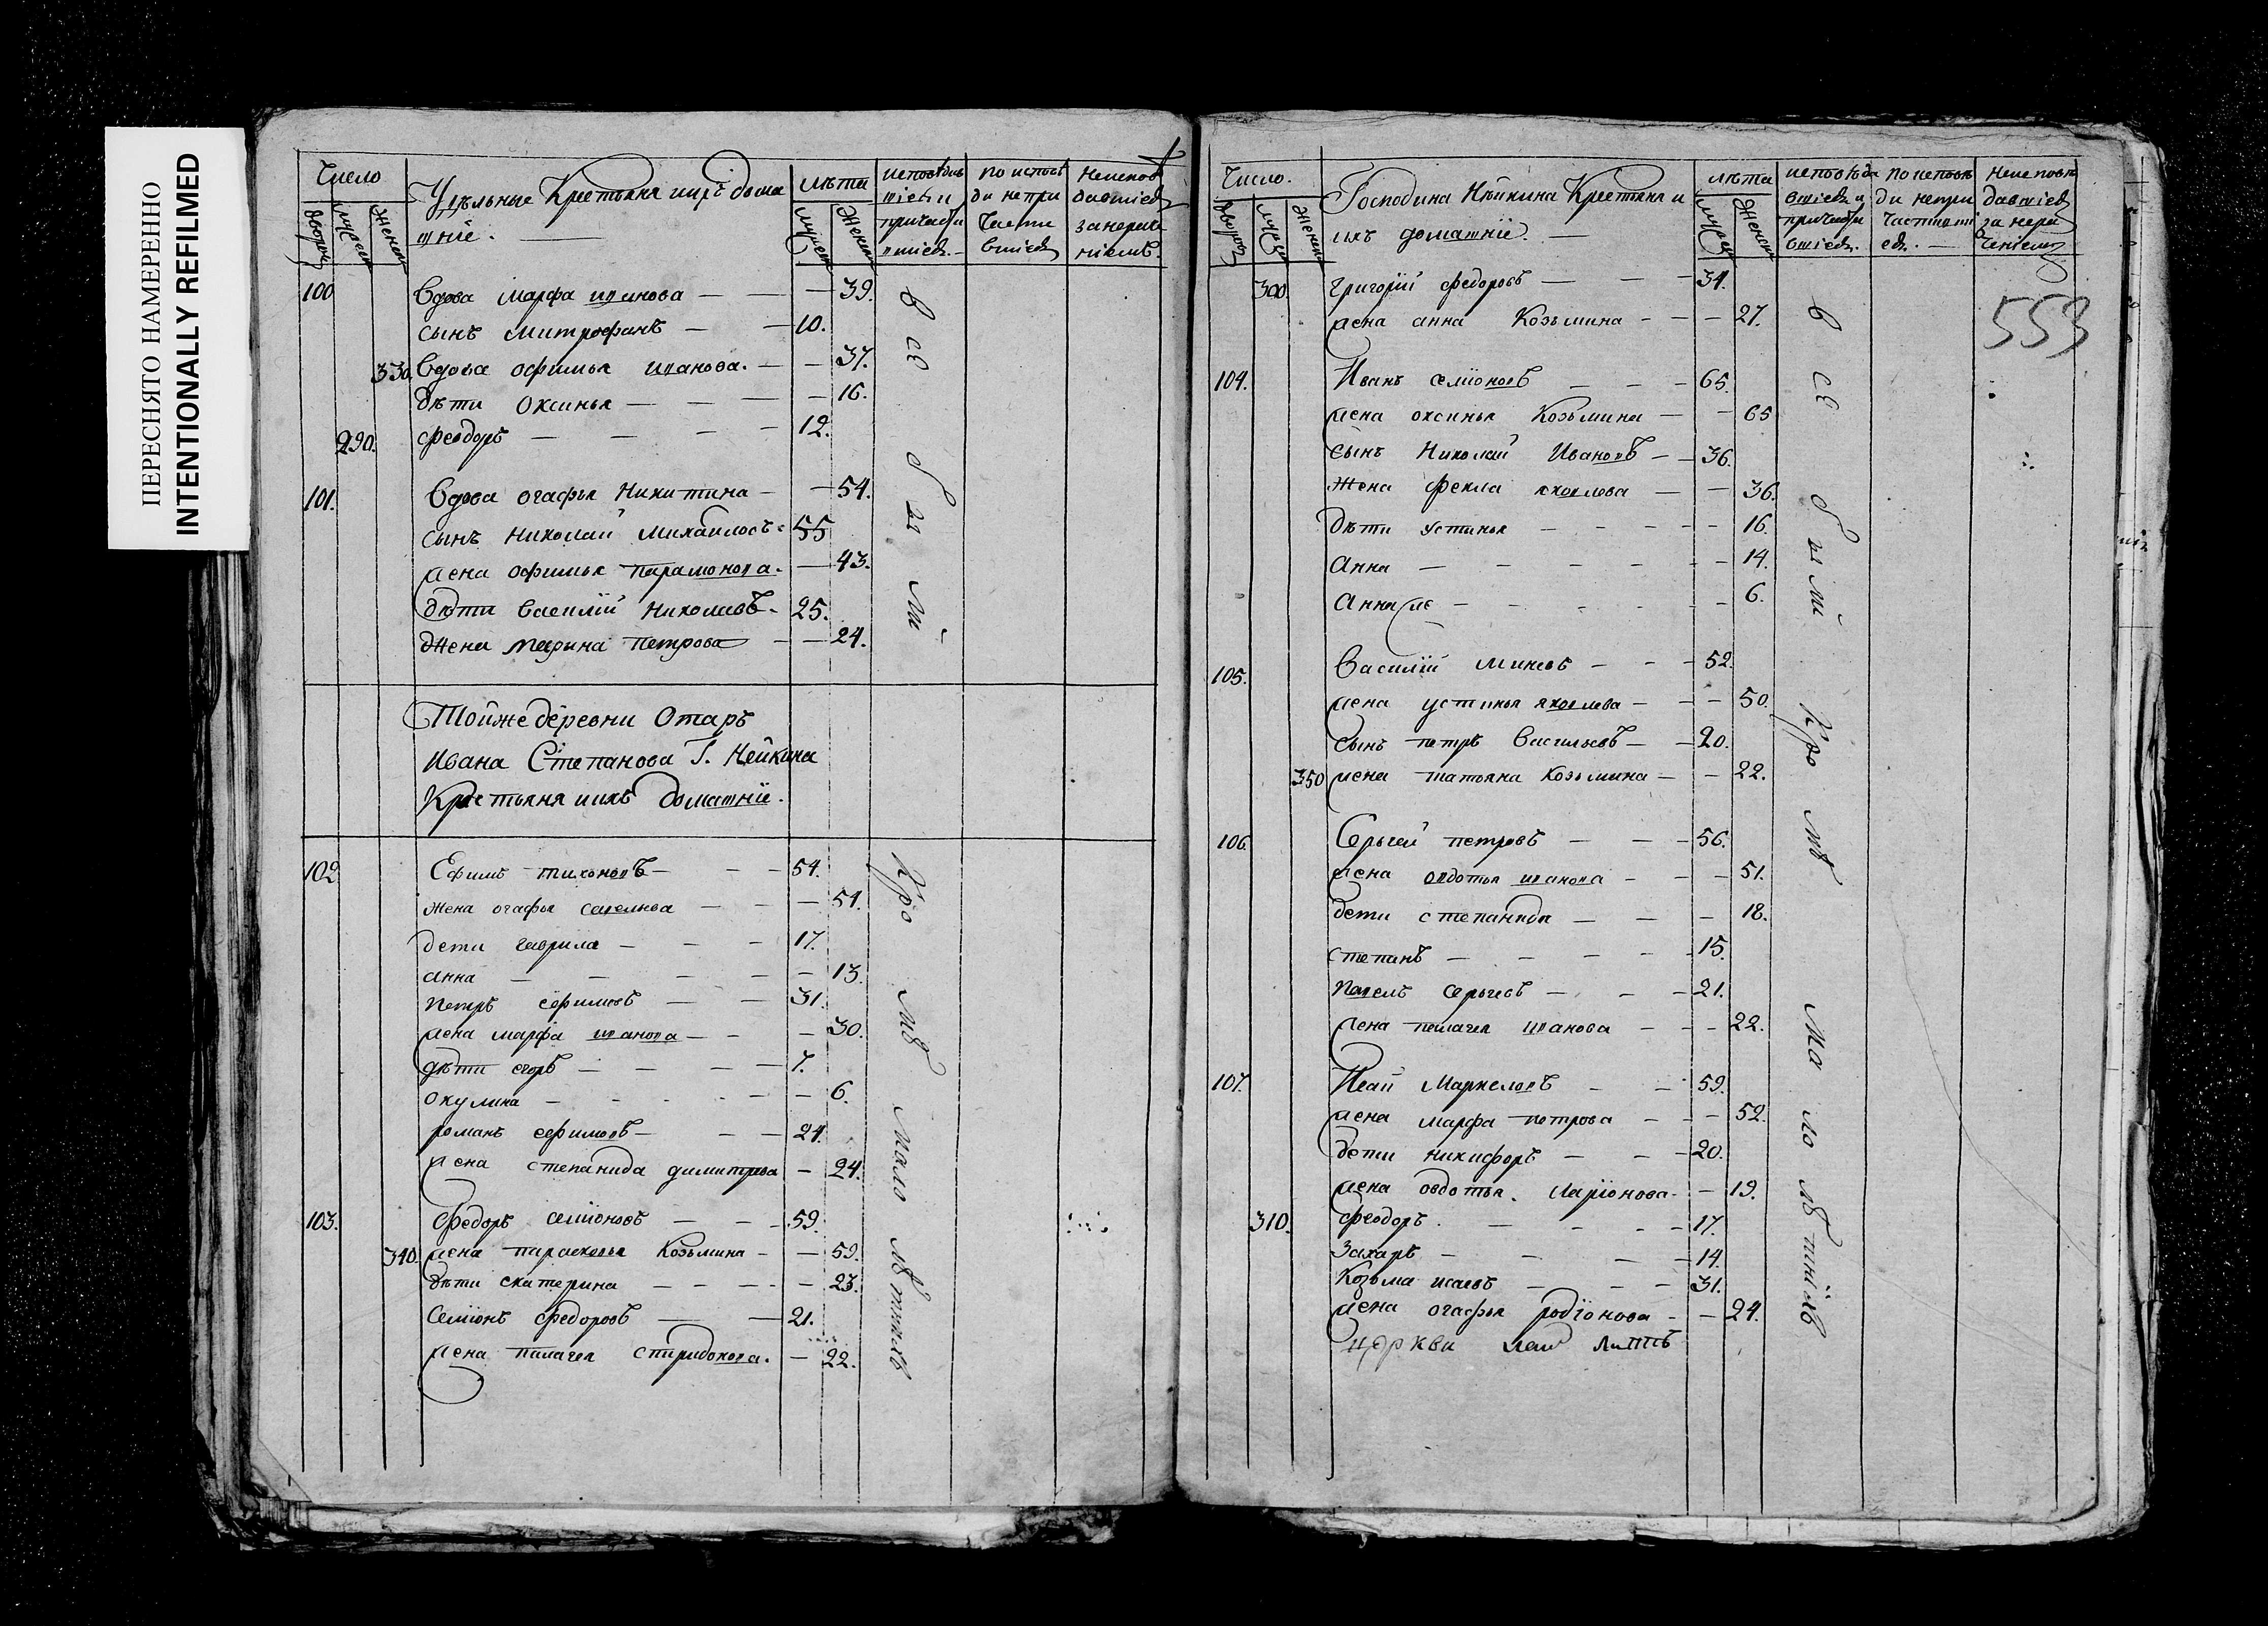 ПЕРЕСНЯТО НАМЕРЕННО
INTENTIONALLY REFILMED
Число
Удѣльные Крестьяня ихъ дома
шніе.
лѣта
дворовъ мужеск женск
мужеск женск
исповѣдав
шіеся и
причасти
вшіеся.
по испов
ди непри
части
вшіеся
Неиспов
давшіеся
за нерач
ніемъ.
100 Вдова марфа иванова — 39.
сынъ митрофанъ — 10.
330. Вдова офимья иванова. — 37.
дѣти Оксинья — 16.
290. феодоръ — 12.
101. Вдова огафья Никитина — 54.
сынъ николай михаиловъ 55
жена офимья парамонова. — 43.
дѣти василій николаевъ. 25.
Жена марина петрова — 24.
Тойже деревни Отаръ
Ивана Степанова Г. Нейкина
Крестьяня ихъ домашніе.
102 Ефимъ тихоновъ — 54.
жена огафья савельева — 51.
дети гаврила — 17.
анна — 13.
петръ ефимовъ — 31.
жена марфа иванова — 30.
дѣти егоръ — 7.
окулина — 6.
романъ ефимовъ — 24.
жена степанида димитрева — 24.
103. Федоръ семіоновъ — 59.
340. жена парасковья Козьмина — 59.
дѣти екатерина — 23.
Семіонъ федоровъ — 21.
жена пилагея спиридонова. — 22.
все
были
Кро
мѣ
мало
лѣтныхъ
Число.
Господина Нѣйкина Крестьяня и
ихъ домашніе.
лѣта
дворовъ мужск женск
мужеск женск
исповѣда
вшіеся и
причасти
вшіеся.
по исповѣ
ди непри
частивші
еся.
Неисповѣ
давшіеся
за нера
ченіемъ
553
300. григорій федоровъ — 34.
жена анна Козьмина — 27.
104. Иванъ семіоновъ — 65.
жена оксинья Козьмина — 65
сынъ Николай Ивановъ — 36.
жена фекла яковлева — 36.
дѣти устинья — 16.
анна — 14.
анна же — 6.
105. Василій минеевъ — 52.
жена устинья яковлева — 50.
сынъ петръ васильевъ — 20.
350 жена татьяна Козьмина — 22.
106. Сергей петровъ — 56.
жена овдотья иванова — 51.
дети степанида — 18.
степанъ — 15.
павелъ сергеевъ — 21.
жена пелагея иванова — 22.
107. Исай Маркеловъ — 59.
жена марфа петрова — 52.
дети никифоръ — 20.
жена овдотья. Ларіонова — 19.
310. феодоръ — 17.
Захаръ — 14.
Козьма исаевъ — 31.
жена огафья родіонова — 24.
церкви
все
были
Кро
мѣ
ма
ло
лѣтніихъ